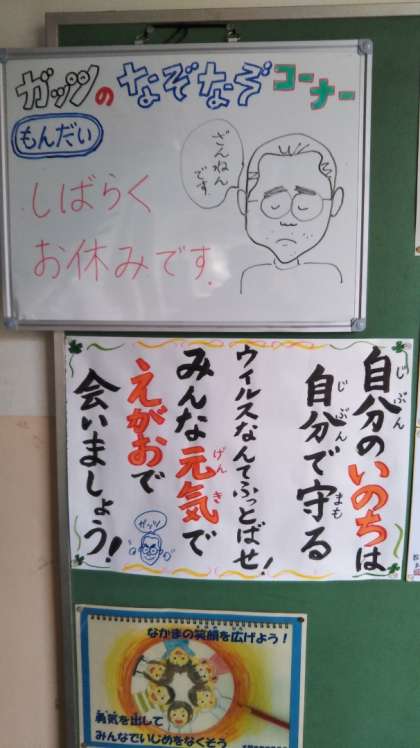 ガッツの なぞなぞ コーナー
もんだい
しばらく
お休みです.
ざんねん
です
自分のいのちは
じぶん
自分で守る
じぶん まも
ウイルスなんてふっとばせ!
みんな元気で
げんき
えがおで
会いましょう!
ガッツ
なかまの笑顔を広げよう!
勇気を出して
みんなでいじめをなくそう